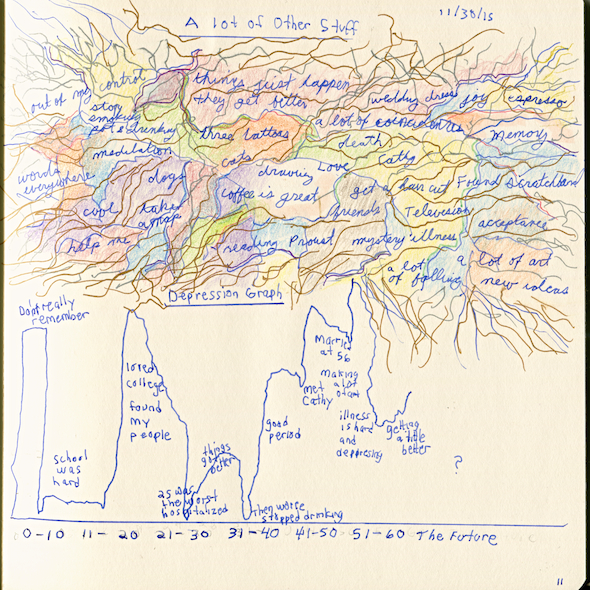 A Lot of Other Stuff
11/30/15
out of my control
things just happen
they get better
wedding dress
joy
espresso
stop
smoking
pot & drinking
three tattoos
a lot of coincidences
Memory
meditation
death
cats
Cathy
words
everywhere
dogs
drawing
Love
coffee is great
get a hair cut
Found Scratchbord
cool
takes
a nap
friends
Television
acceptance
help me
reading Proust
mystery illness
a lot
of falling
a lot of art
new ideas
Depression Graph
Don't really
remember
loved
college
found
my
people
Married
at 56
making
a lot
of art
met
Cathy
school
was
hard
things
got
better
good
period
illness
is hard
and
depressing
getting
a little
better
?
25 was
the worst
hospitalized
Then worse
stopped drinking
0-10 11-20 21-30 31-40 41-50 51-60 The Future
11